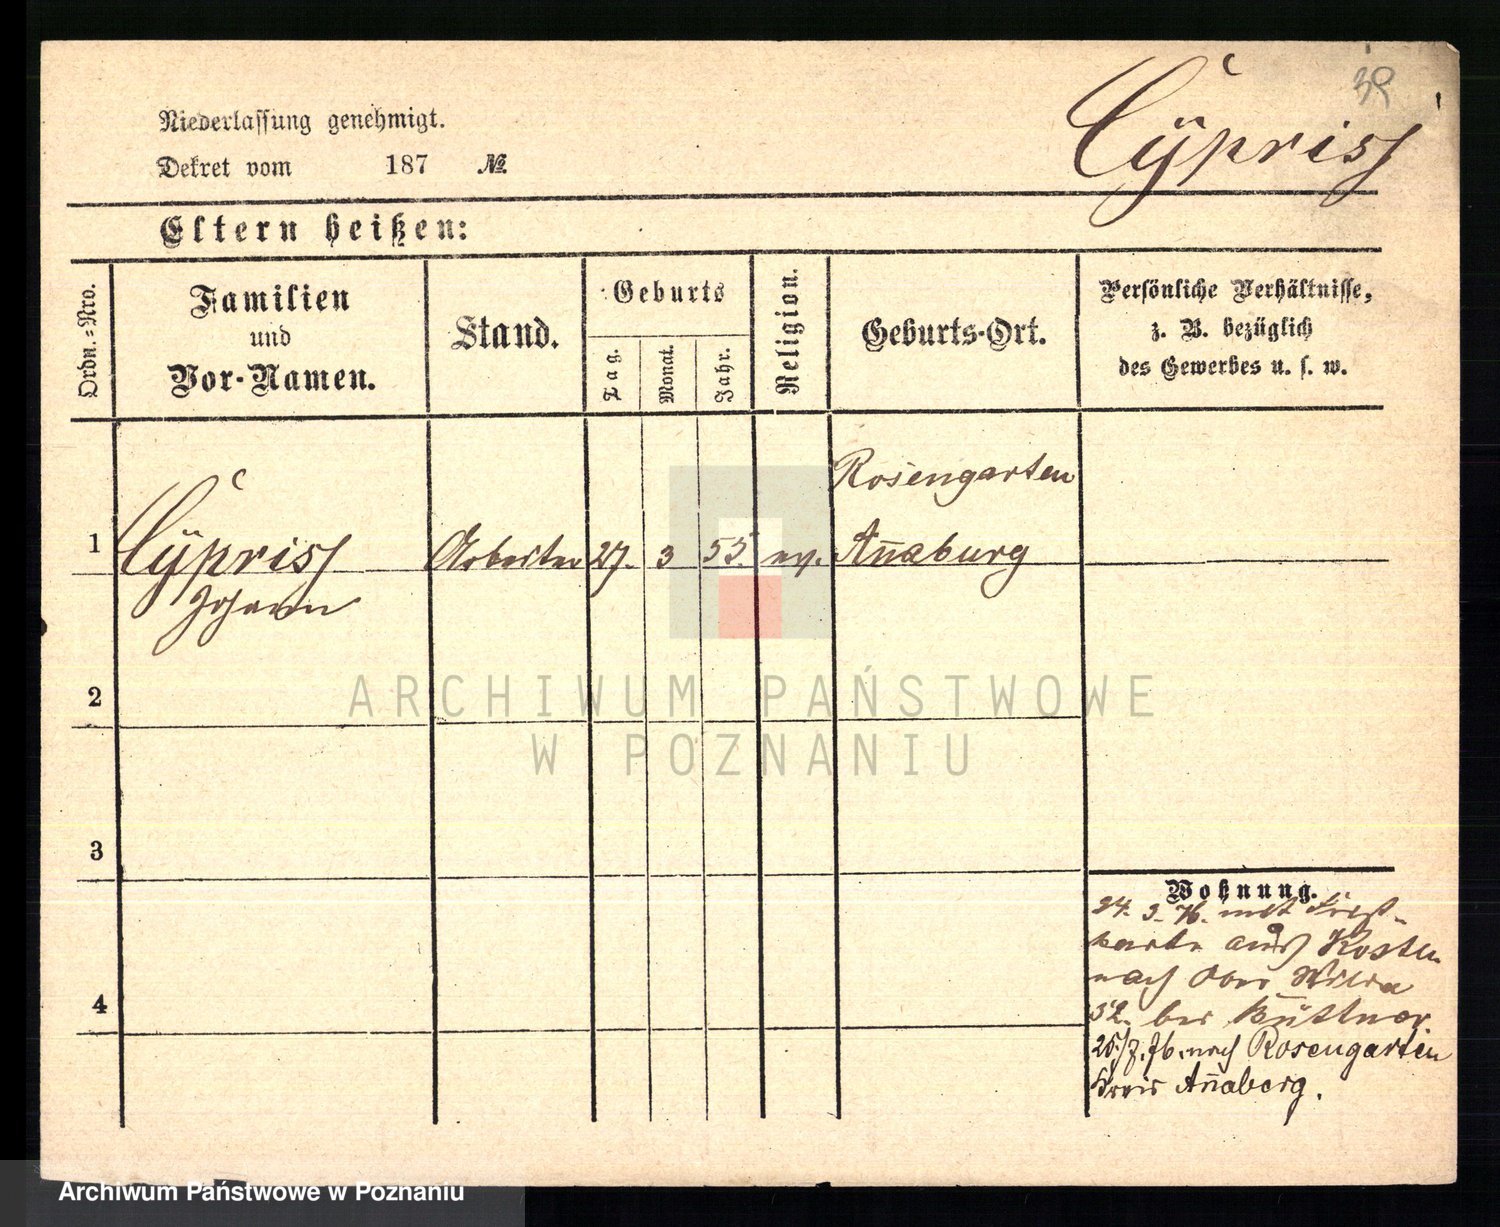 39
Cÿpriss
Niederlassung genehmigt.
Dekret vom 187 №
Eltern heißen:
Ordn.-Nro.
Familien und Vor-Namen.
Stand.
Geburts
Tag.
Monat.
Jahr.
Religion.
Geburts-Ort.
Persönliche Verhältnisse,
z. B. bezüglich
des Gewerbes u. s. w.
Rosengarten
1 Cÿpriss Arbeiter 27. 3 55. ev. An̄aburg
Johann
2
ARCHIWUM PAŃSTWOWE
W POZNANIU
3
Wohnung.
24. 3. 76. mit
karte aus Kosten
nach Ober Wilda
52. bei Büttner.
25/7. 76. nach Rosengarten
Kreis An̄aberg.
4
Archiwum Państwowe w Poznaniu